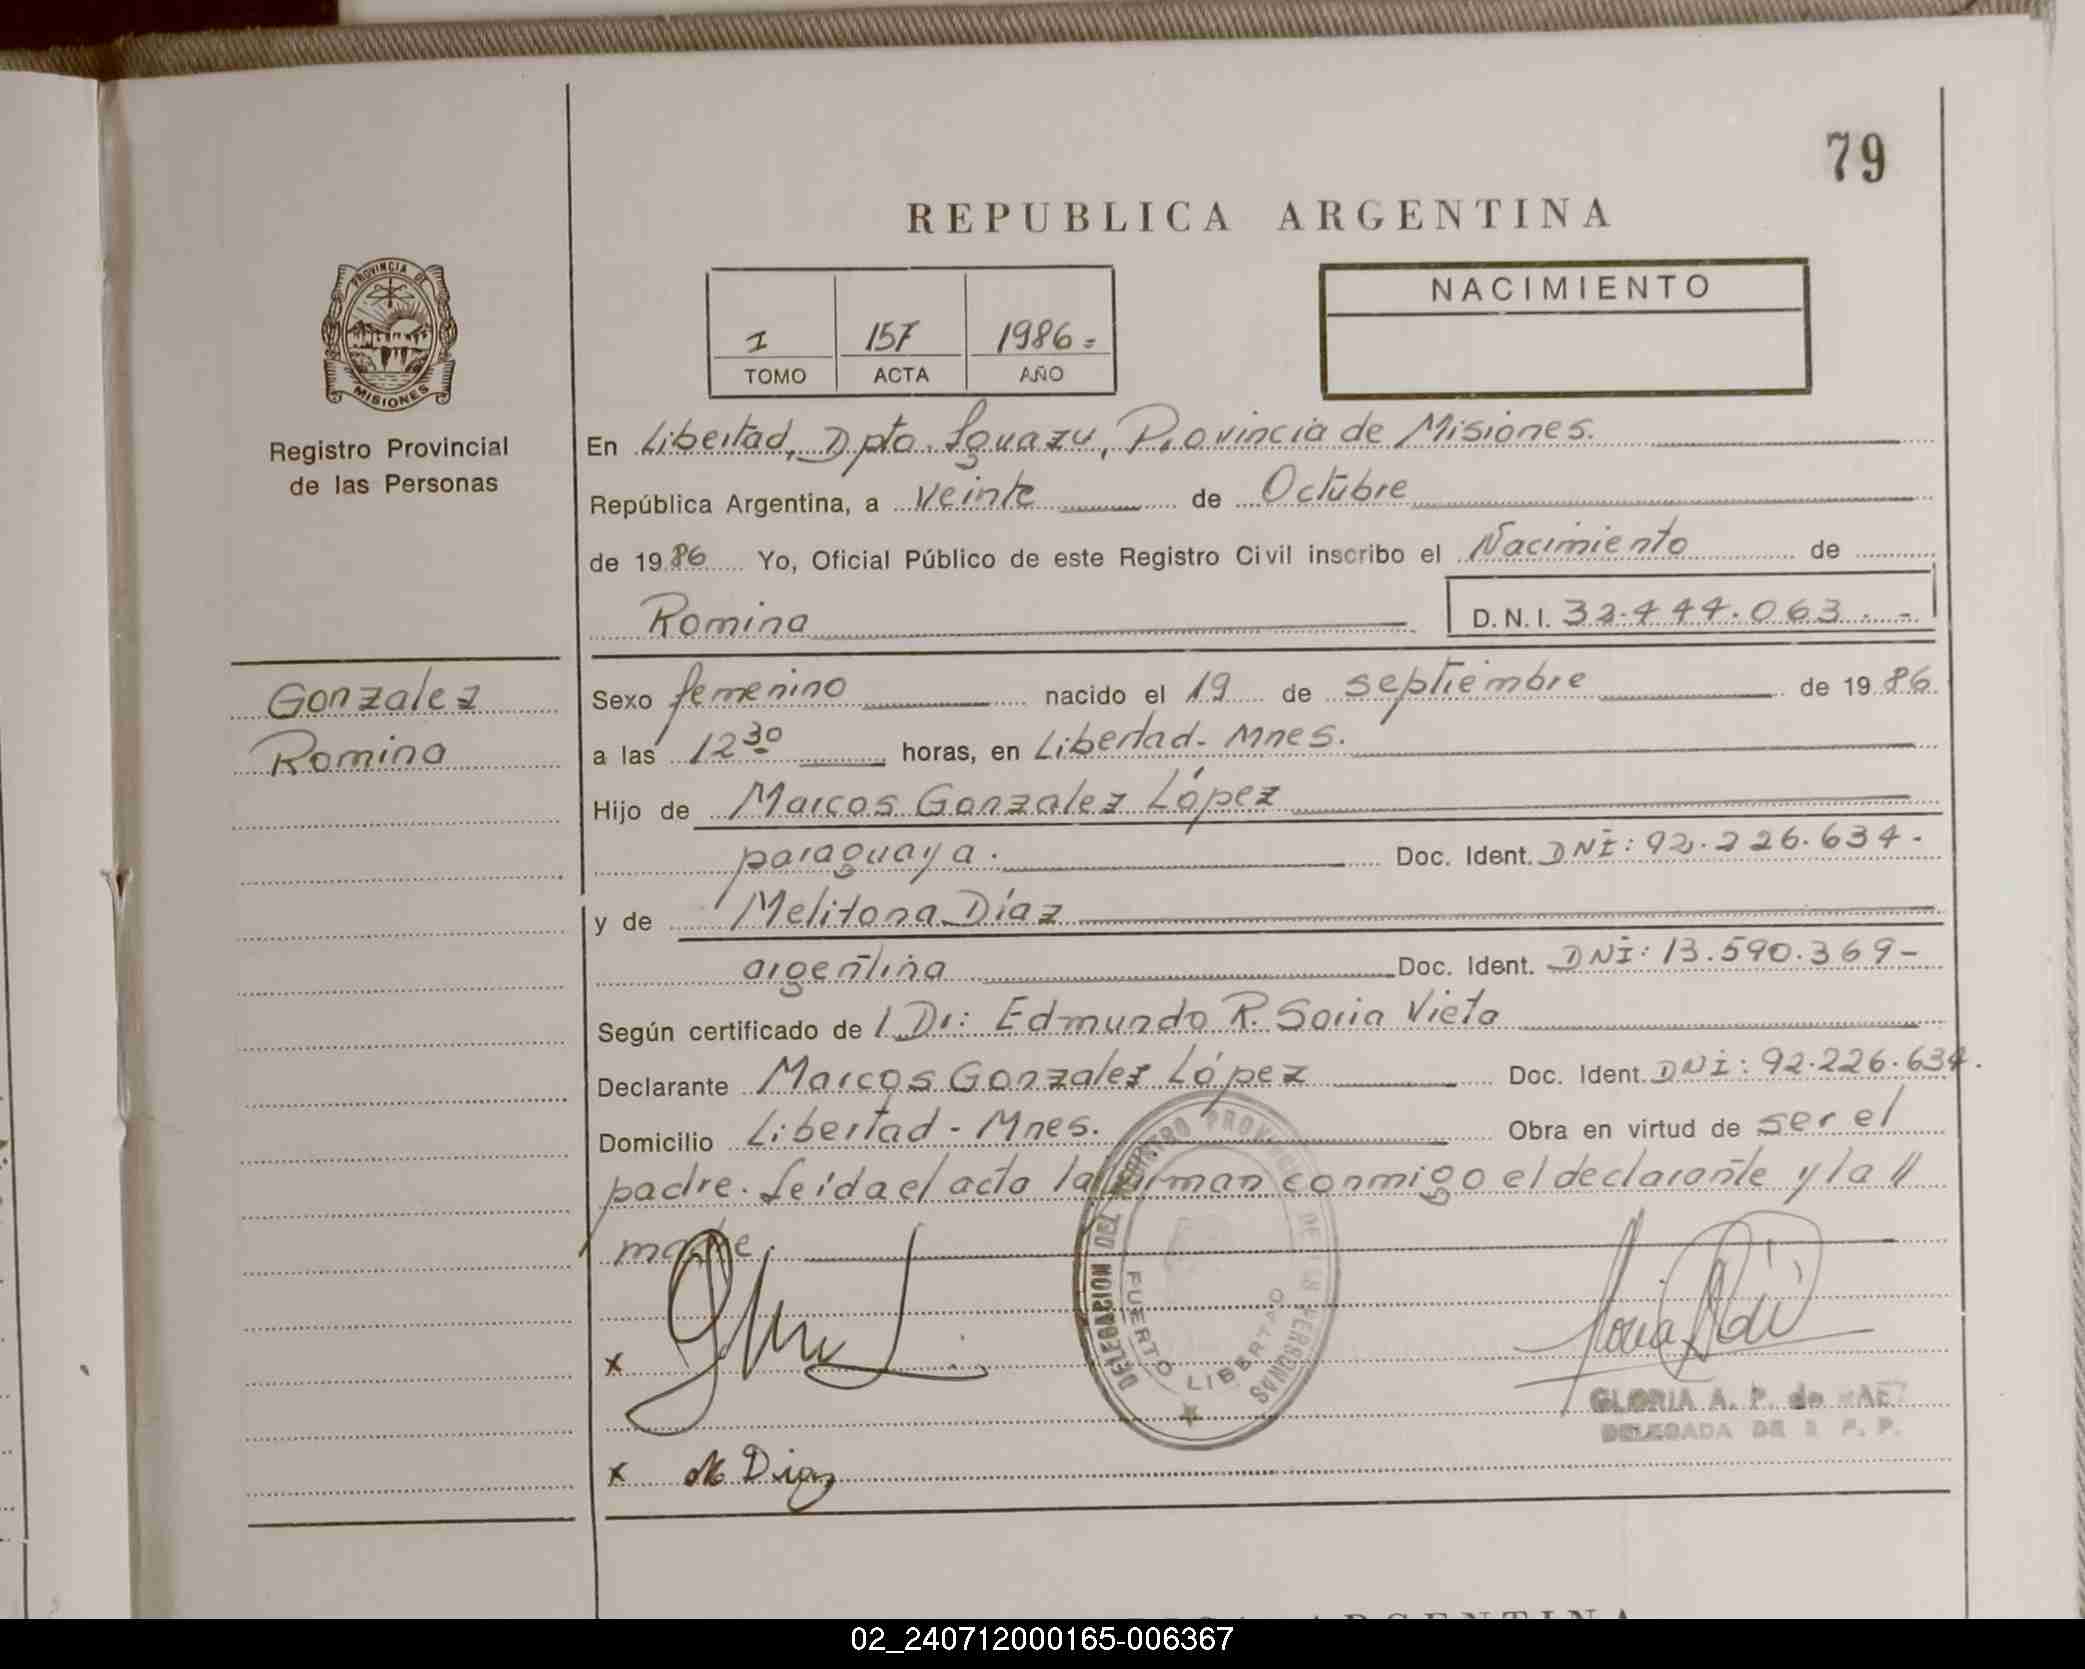 79
REPUBLICA ARGENTINA
PROVINCIA DE MISIONES
Registro Provincial
de las Personas
I 157 1986=
TOMO ACTA AÑO
NACIMIENTO
En Libertad, Dpto. Iguazu, Provincia de Misiones.
República Argentina, a Veinte de Octubre
de 1986 Yo, Oficial Público de este Registro Civil inscribo el Nacimiento de
Romina D.N.I. 32.444.063.-
Gonzalez
Romina
Sexo femenino nacido el 19 de septiembre de 1986
a las 12 30 horas, en Libertad- Mnes.
Hijo de Marcos Gonzalez López
paraguaya. Doc. Ident. DNI: 92.226.634-
y de Melitona Díaz
argentina Doc. Ident. DNI: 13.590.369-
Según certificado de / Dr: Edmundo R. Soria Vieta
Declarante Marcos Gonzalez López Doc. Ident. DNI: 92.226.634.
Domicilio Libertad - Mnes. Obra en virtud de ser el
padre. Leida el acta la firman conmigo el declarante y la //
madre.
DELEGACION DEL REGISTRO PROVINCIAL DE LAS PERSONAS
PUERTO LIBERTAD
x
GLORIA A. P. de
DELEGADA DE R. P. P.
x M Diaz
REPUBLICA ARGENTINA
02_240712000165-006367